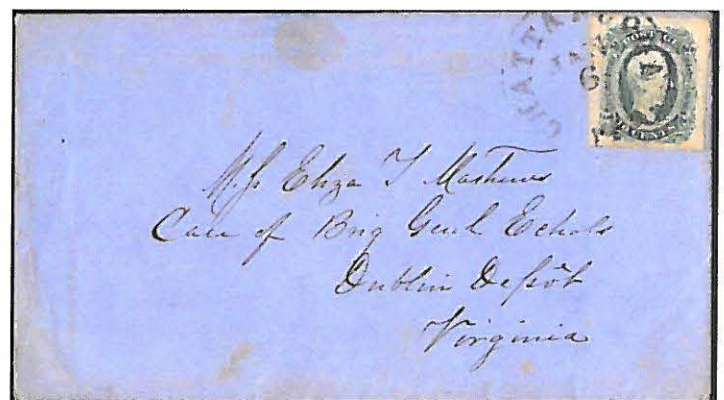 CHATTA
Miss Eliza T Mathews
Care of Brig Genl Echols
Dublin Depôt
Virginia